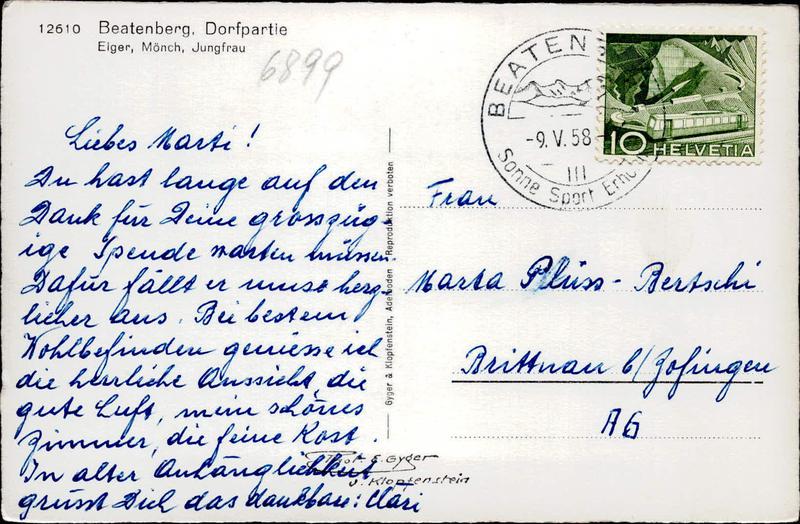 12610 Beatenberg, Dorfpartie
Eiger, Mönch, Jungfrau
6899
BEATEN
-9.V.58
III
Sonne Sport Erho
10 HELVETIA
Liebes Marti!
Du hast lange auf den
Dank für Deine grosszüg
ige Spende warten müssen.
Dafür fällt er umso herz-
licher aus. Bei bestem
Wohlbefinden geniesse ich
die herrliche Aussicht, die
gute Luft, mein schönes
Zimmer, die feine Kost.
In alter Anhänglichkeit
grüsst Dich das dankbare: Cläri
Gyger & Klopfenstein, Adelboden Reproduktion verboten
Phot. E. Gyger
J. Klopfenstein
Frau
Marta Plüss-Bertschi
Brittnau b/Zofingen
AG